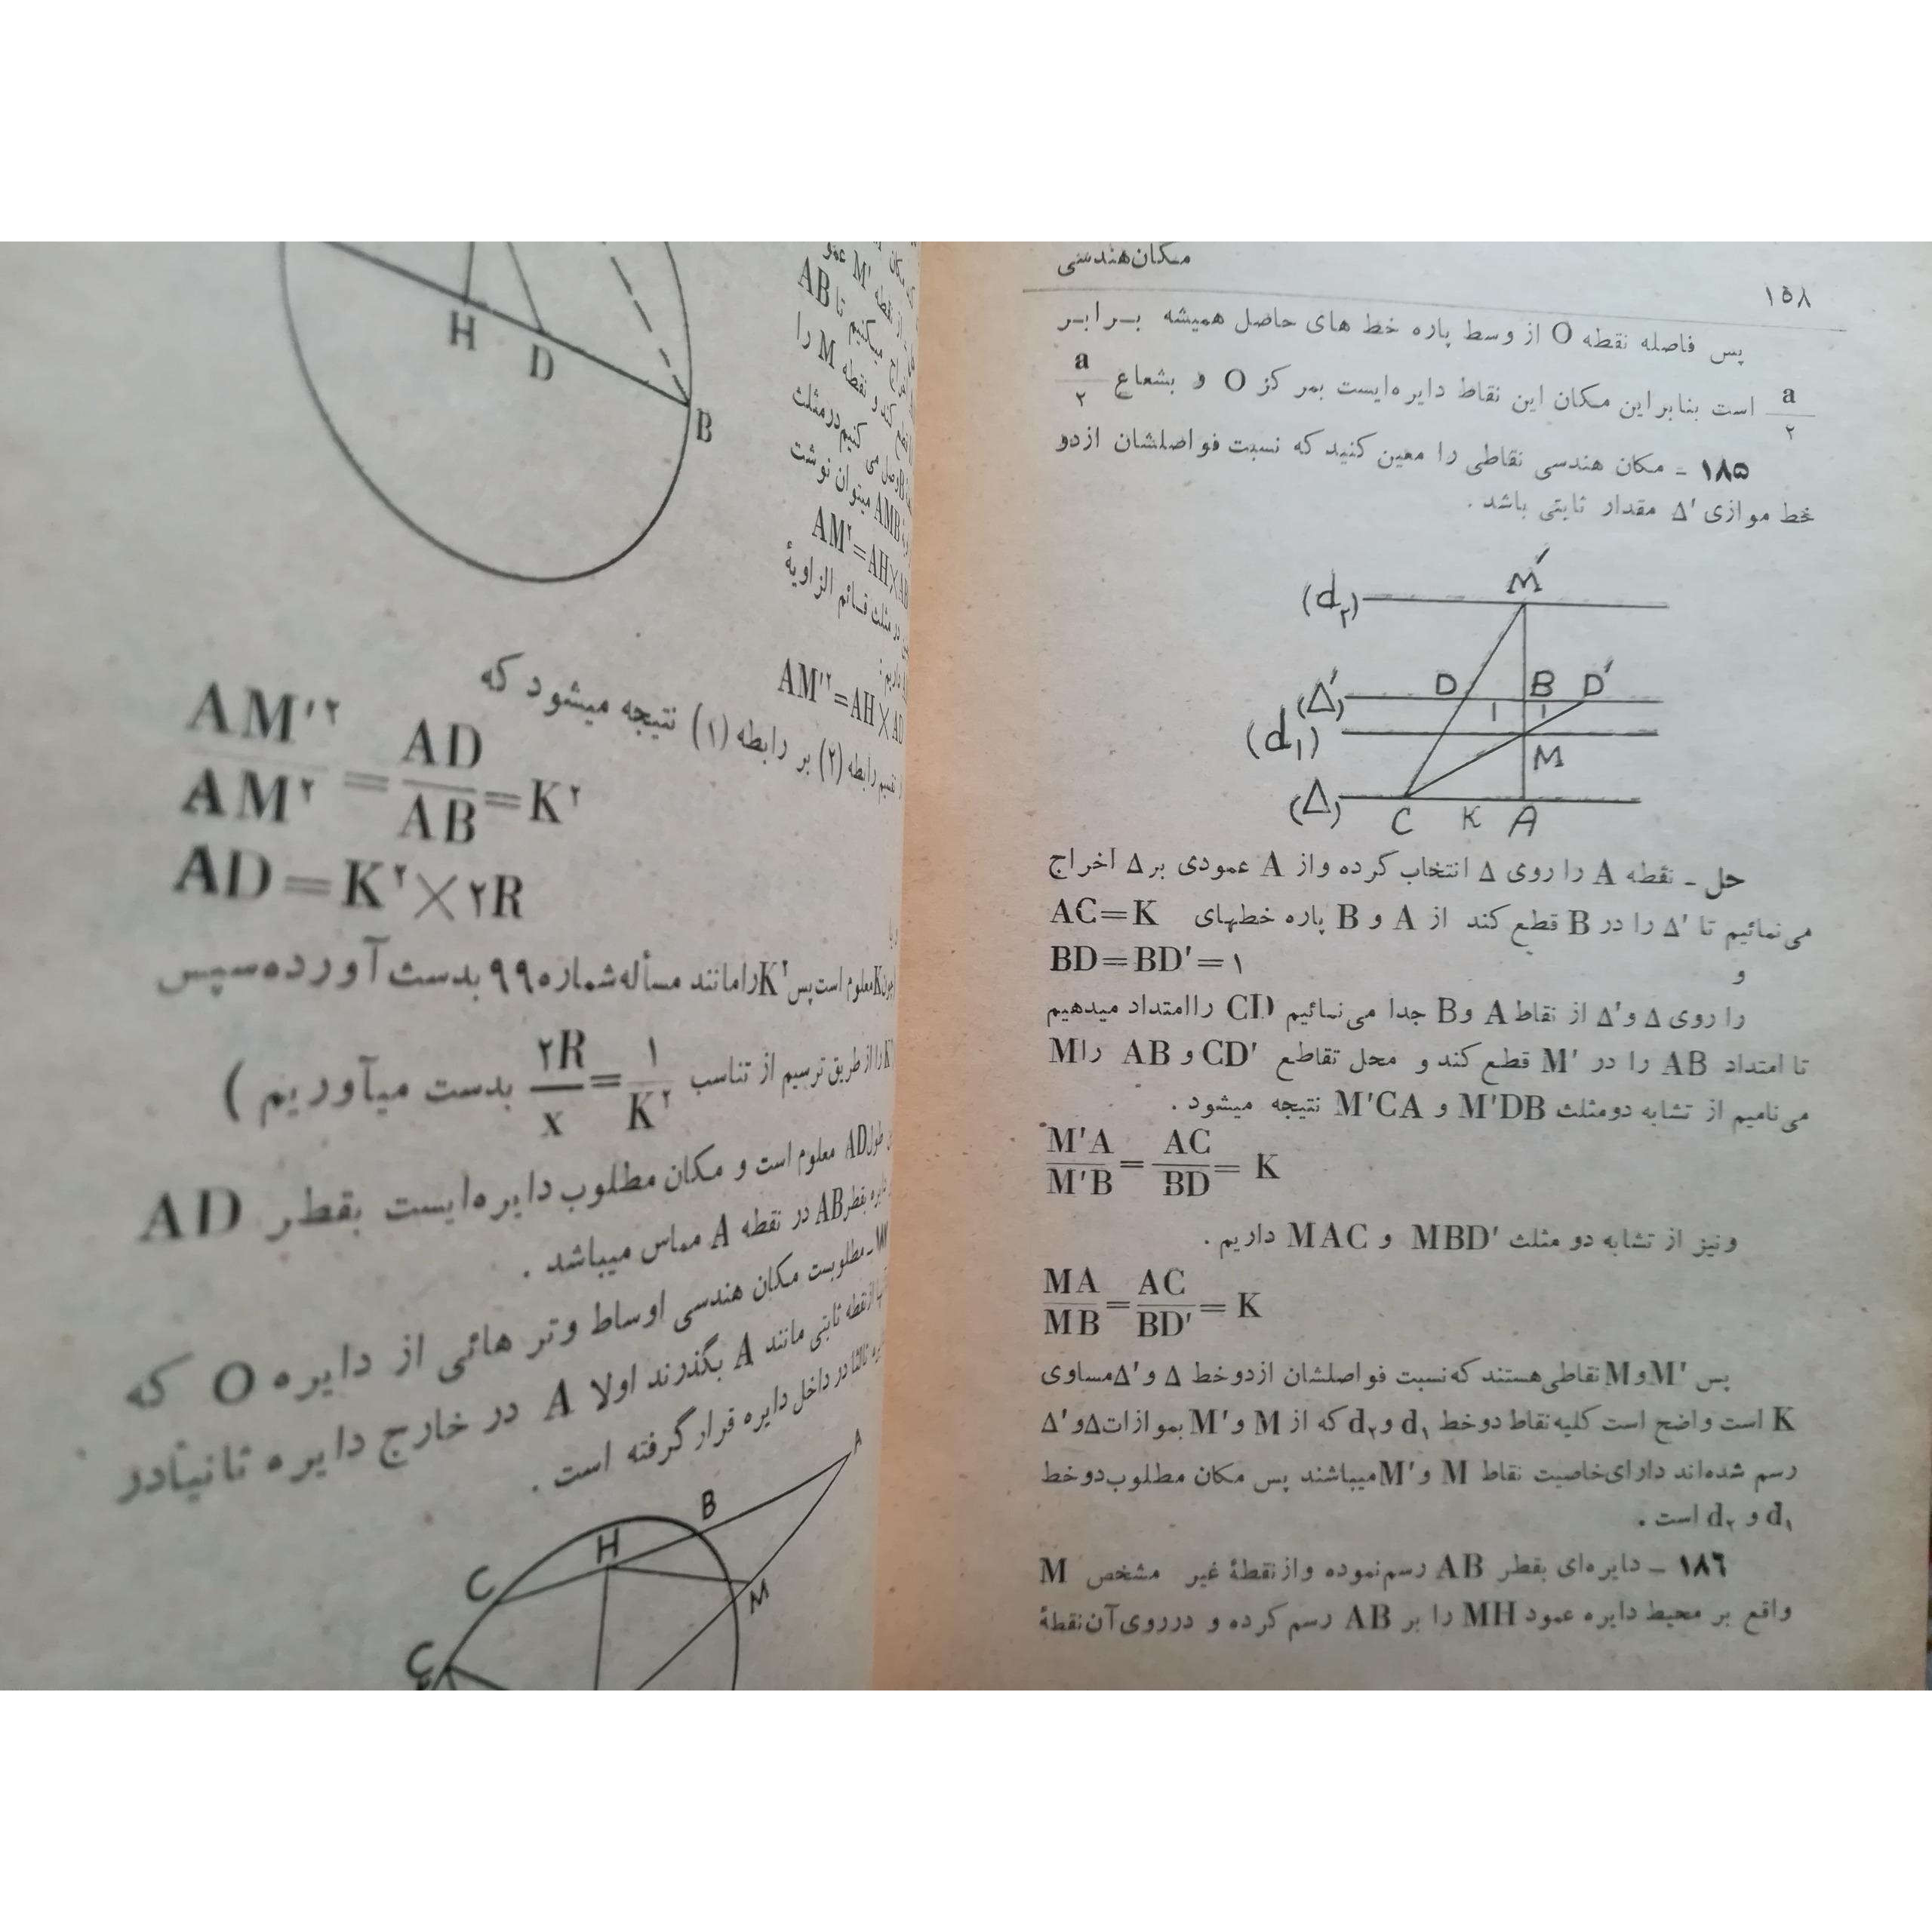 مکان هندسی
۱۵۸
پس فاصله نقطه O از وسط پاره خط های حاصل همیشه بـرابـر
a/۲ است بنابراین مکان این نقاط دایره‌ایست بمرکز O و بشعاع a/۲
۱۸۵ ـ مکان هندسی نقاطی را معین کنید که نسبت فواصلشان ازدو
خط موازی Δ′ مقدار ثابتی باشد .
M′
(d₂)
D B D′
(Δ′)
1 1
(d₁)
M
(Δ)
C K A
حل ـ نقطه A را روی Δ انتخاب کرده واز A عمودی بر Δ اخراج
می‌نمائیم تا Δ′ را در B قطع کند از A و B پاره خطهای AC=K
و BD=BD′=۱
را روی Δ و Δ′ از نقاط A و B جدا می‌نمائیم CD راامتداد میدهیم
تا امتداد AB را در M′ قطع کند و محل تقاطع CD′ و AB را M
می‌نامیم از تشابه دومثلث M′DB و M′CA نتیجه میشود .
M′A/M′B = AC/BD = K
ونیز از تشابه دو مثلث MBD′ و MAC داریم .
MA/MB = AC/BD′ = K
پس M′ و M نقاطی هستند که نسبت فواصلشان ازدوخط Δ و Δ′ مساوی
K است واضح است کلیه نقاط دوخط d₁ و d₂ که از M و M′ بموازات Δ و Δ′
رسم شده‌اند دارای خاصیت نقاط M و M′ میباشند پس مکان مطلوب دوخط
d₁ و d₂ است .
۱۸۶ ـ دایره‌ای بقطر AB رسم نموده واز نقطهٔ غیر مشخص M
واقع بر محیط دایره عمود MH را بر AB رسم کرده و درروی آن نقطهٔ
H
D
B
مکان
از نقطه M′ عمو
میکنیم تا AB
کند و نقطه M را
وصل می کنیم درمثلث
AMB میتوان نوشت
AM²=AH×AB
در مثلث قائم الزاویهٔ
داریم :
AM′²=AH×AD
تقسیم رابطه (۲) بر رابطه (۱) نتیجه میشود که
AM′²/AM² = AD/AB = K²
AD=K²×۲R
K معلوم است پس K² را مانند مسأله شماره ۹۹ بدست آورده سپس
را از طریق ترسیم از تناسب ۲R/x = ۱/K² بدست میآوریم )
طول AD معلوم است و مکان مطلوب دایره‌ایست بقطر AD
دایره بقطر AB در نقطه A مماس میباشد .
مطلوبست مکان هندسی اوساط وتر هائی از دایره O که
از نقطه ثابتی مانند A بگذرند اولا A در خارج دایره ثانیاً در
ثالثا در داخل دایره قرار گرفته است .
A
B
H
C
M
C